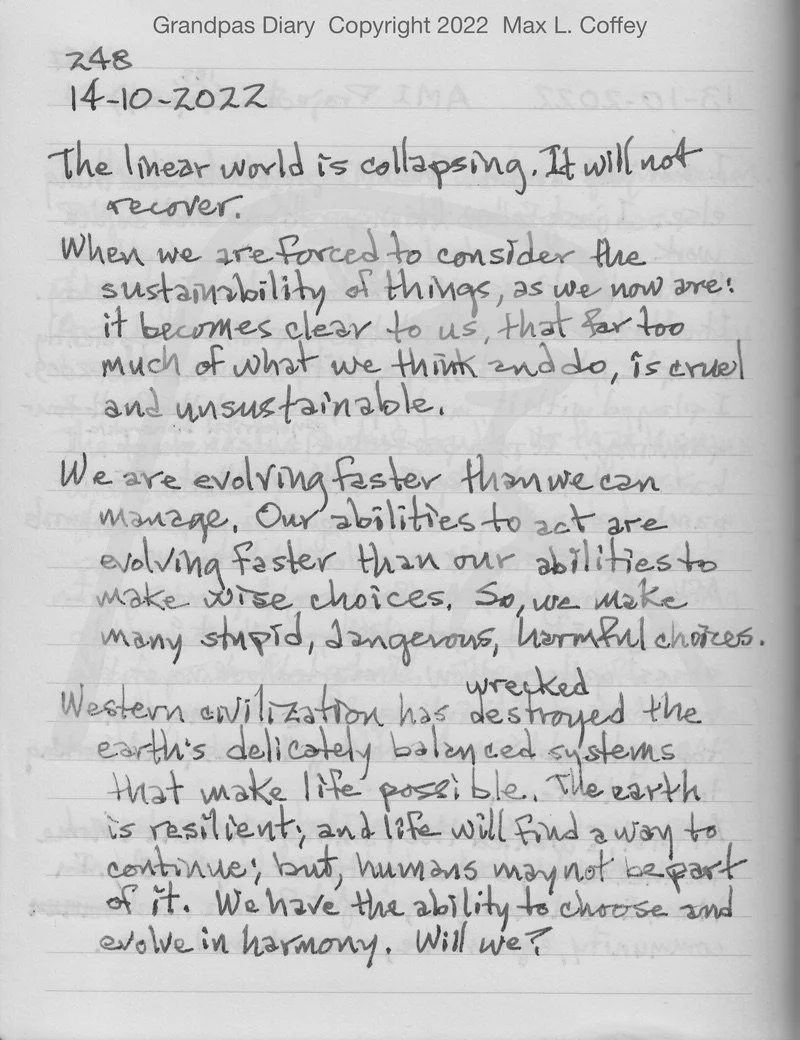 Grandpas Diary  Copyright 2022  Max L. Coffey
248
14-10-2022
The linear world is collapsing. It will not
recover.
When we are forced to consider the
sustainability of things, as we now are:
it becomes clear to us, that far too
much of what we think and do, is cruel
and unsustainable.
We are evolving faster than we can
manage. Our abilities to act are
evolving faster than our abilities to
make wise choices. So, we make
many stupid, dangerous, harmful choices.
wrecked
Western civilization has destroyed the
earth's delicately balanced systems
that make life possible. The earth
is resilient; and life will find a way to
continue; but, humans may not be part
of it. We have the ability to choose and
evolve in harmony. Will we?